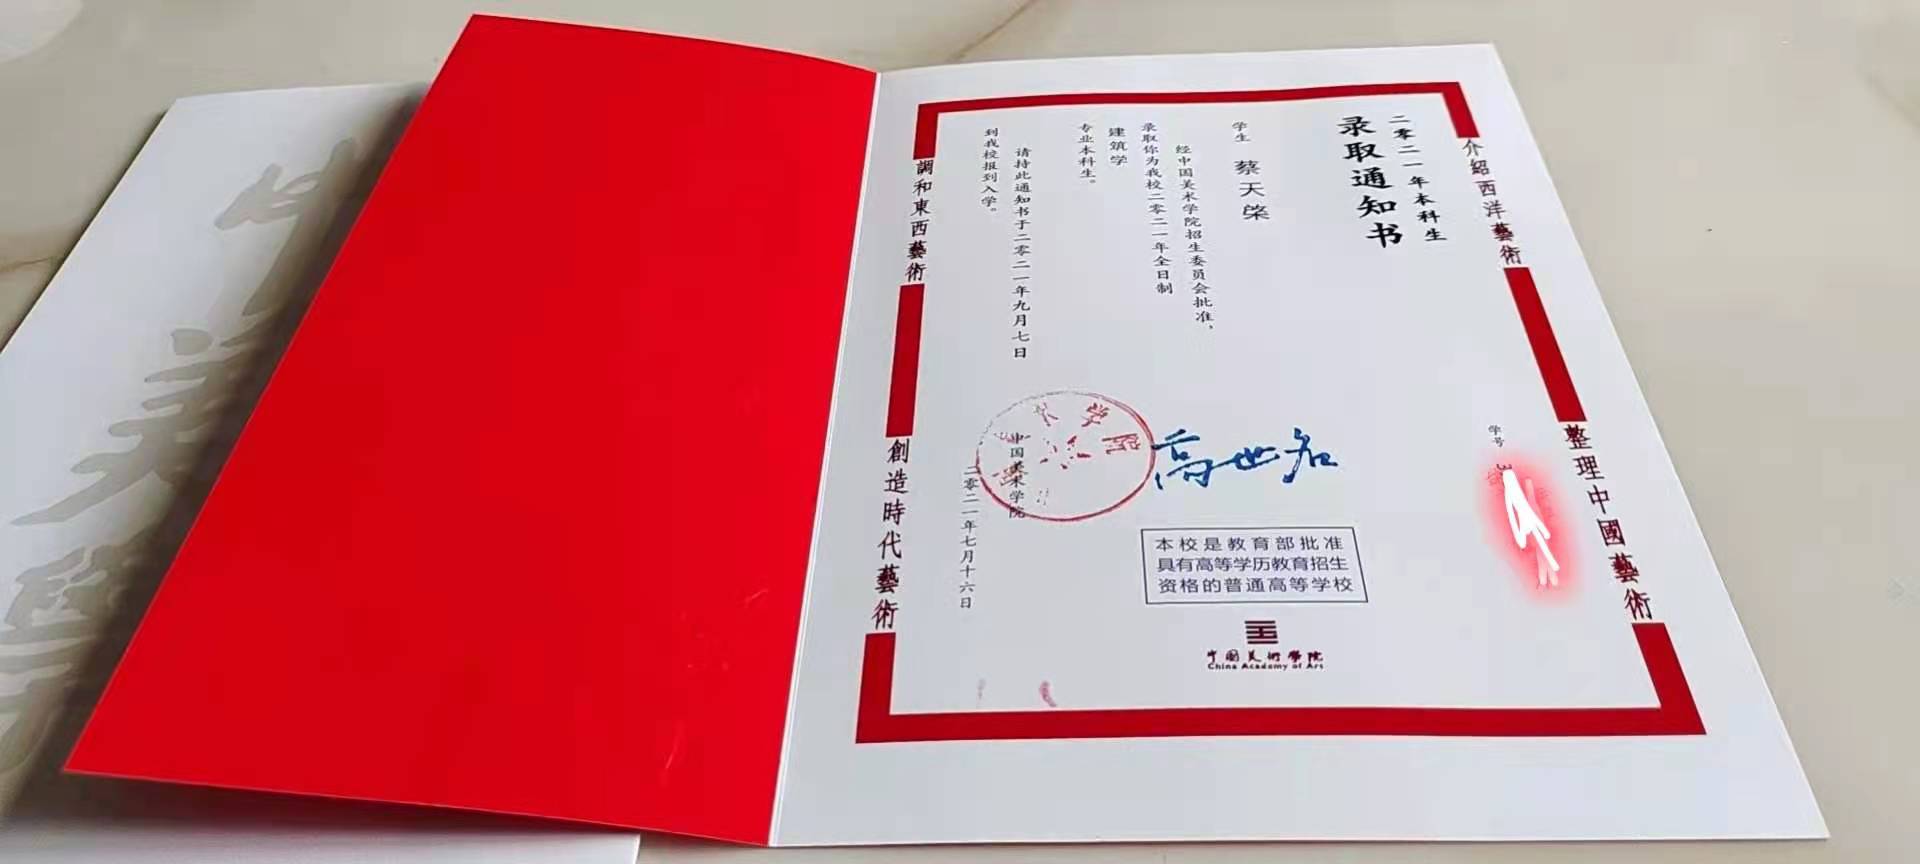 介紹西洋藝術
整理中國藝術
二零二一年本科生
录取通知书
学号
学生 蔡天棨
经中国美术学院招生委员会批准，
录取你为我校二零二一年全日制
建筑学
专业本科生。
请持此通知书于二零二一年九月七日
到我校报到入学。
高世名
中国美术学院
二零二一年七月十六日
本校是教育部批准
具有高等学历教育招生
资格的普通高等学校
中国美術學院
China Academy of Art
調和東西藝術
創造時代藝術